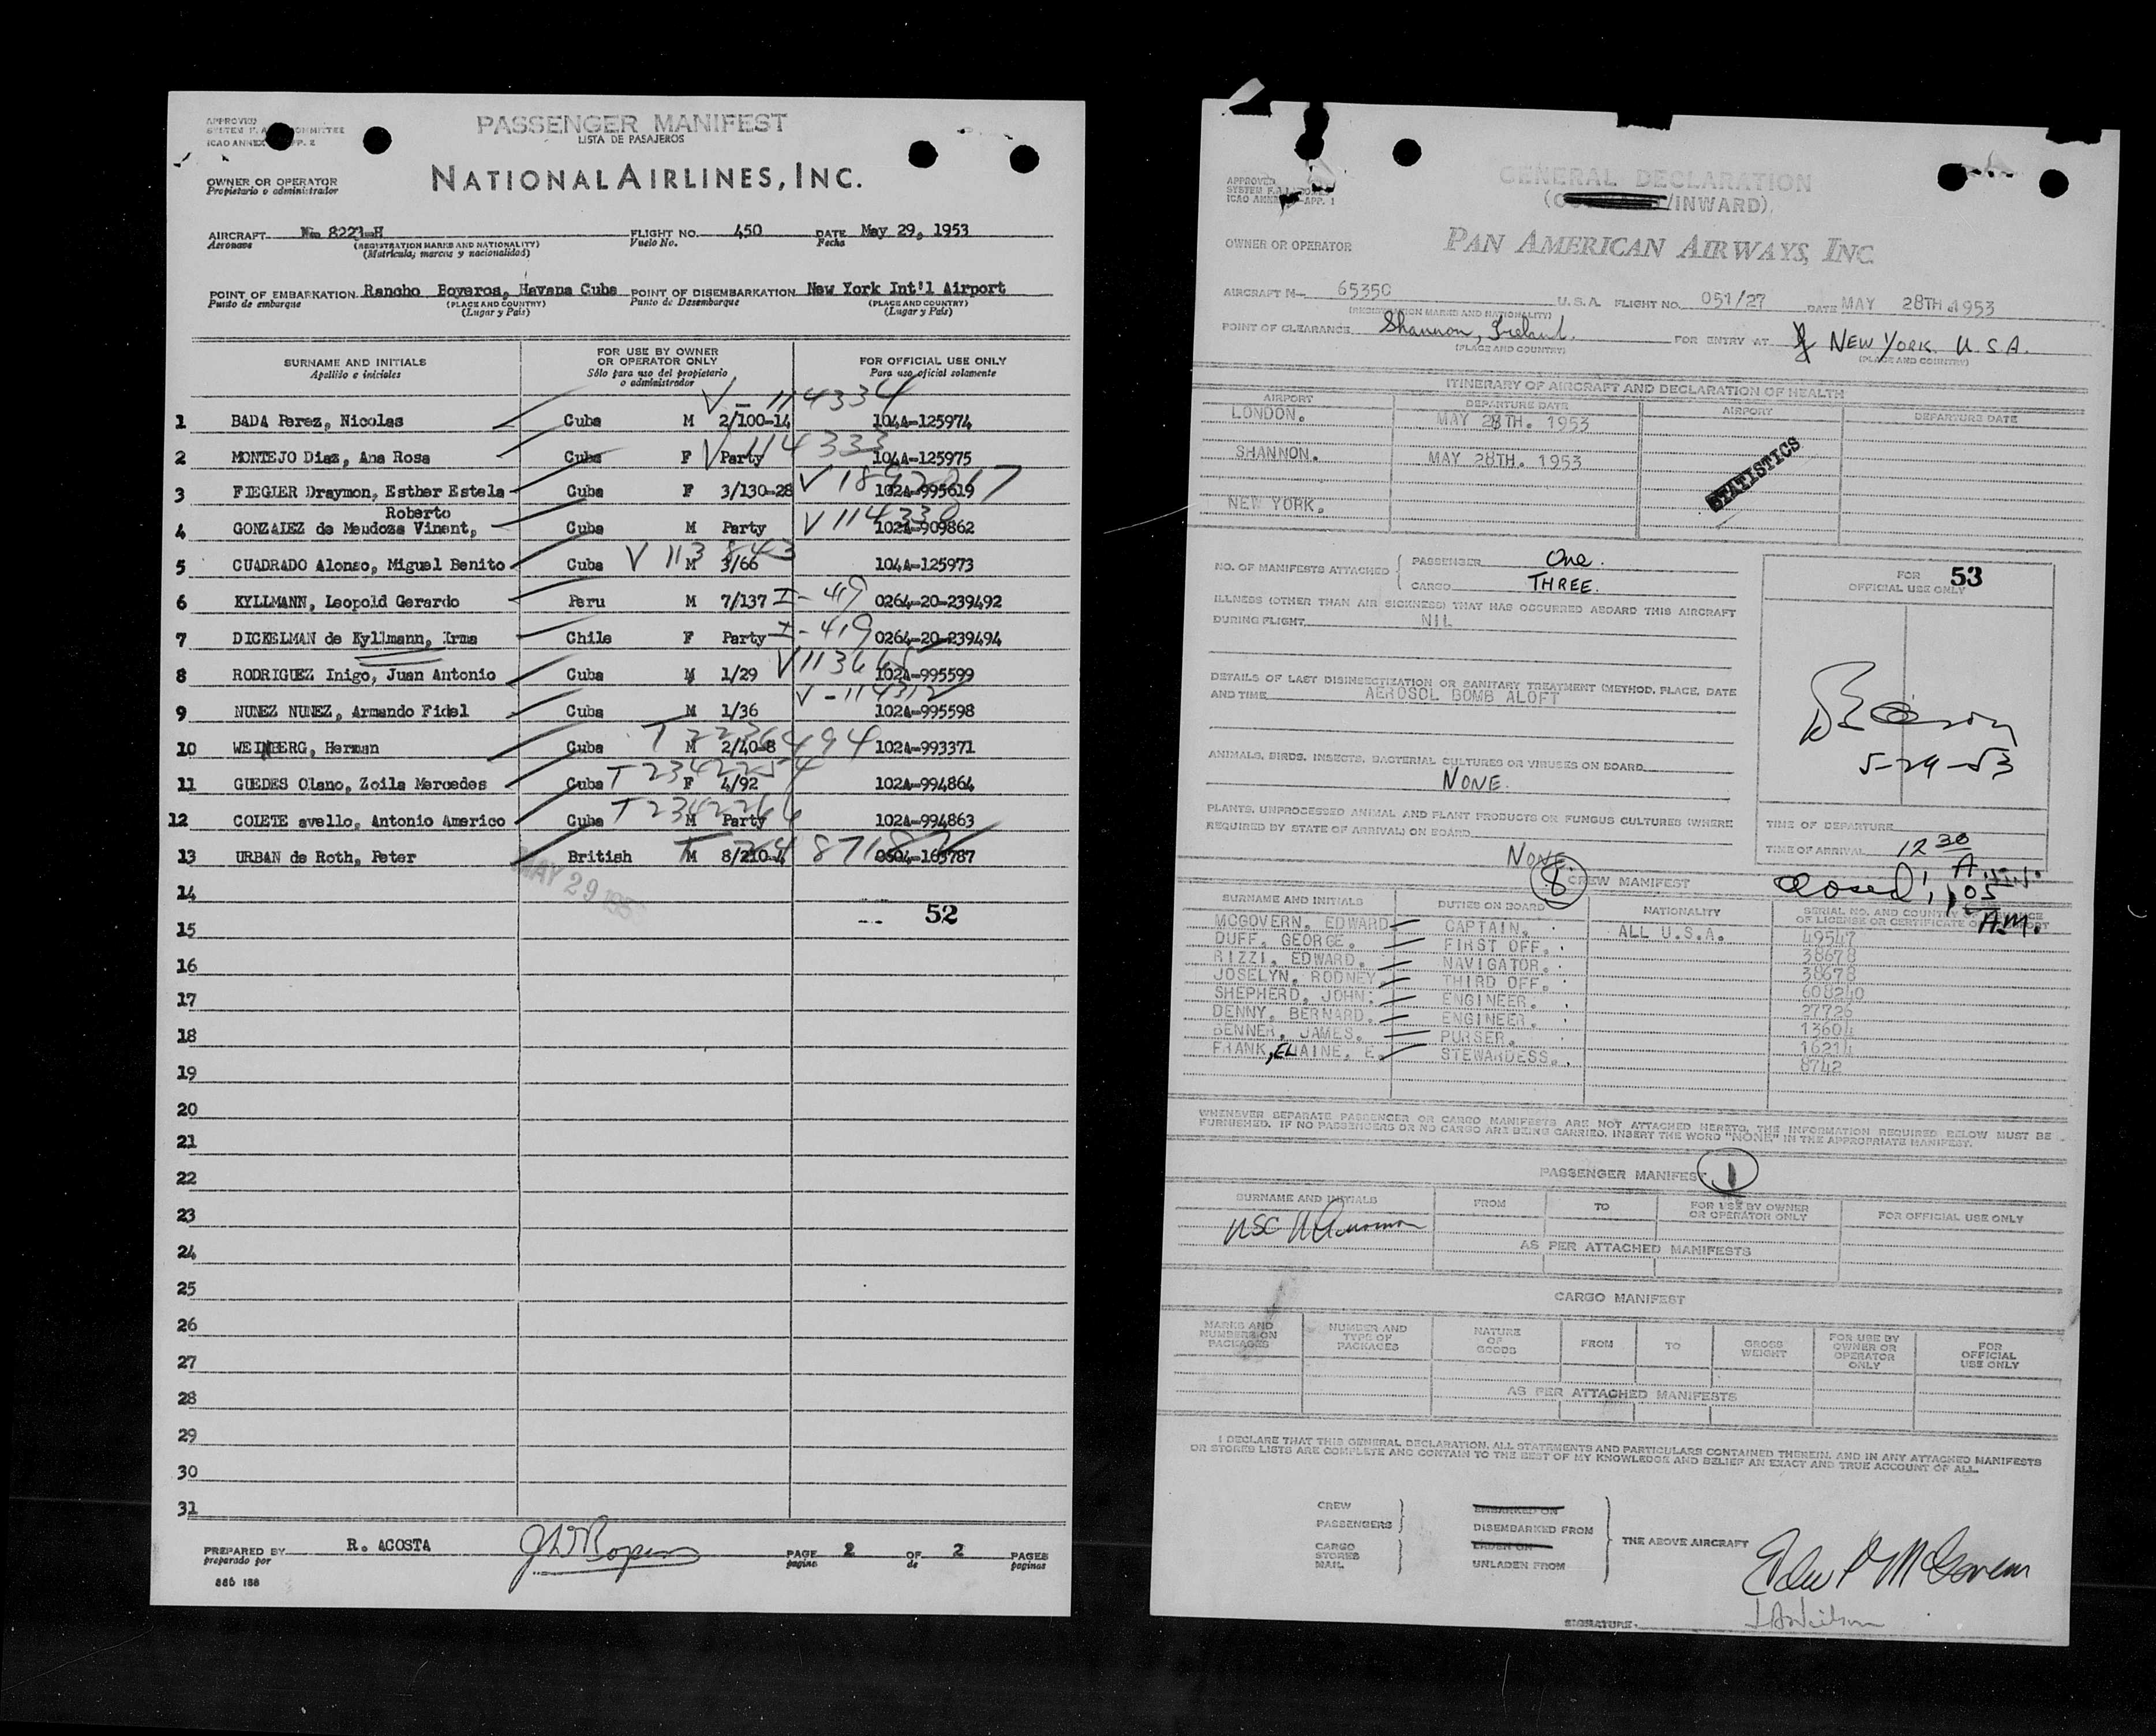 PASSENGER MANIFEST
LISTA DE PASAJEROS
OWNER OR OPERATOR
Propietario o administrador
NATIONAL AIRLINES, INC.
AIRCRAFT FLIGHT NO. 450 DATE May 29, 1953
Aeronave (REGISTRATION MARKS AND NATIONALITY) Vuelo No. Fecha
(Matrícula, marcas y nacionalidad)
POINT OF EMBARKATION Rancho Boyeros, Havana Cuba POINT OF DISEMBARKATION New York Int'l Airport
Punto de embarque (PLACE AND COUNTRY) Punto de Desembarque (PLACE AND COUNTRY)
(Lugar y País) (Lugar y País)
SURNAME AND INITIALS FOR USE BY OWNER OR OPERATOR ONLY FOR OFFICIAL USE ONLY
Apellido e iniciales Sólo para uso del propietario o administrador Para uso oficial solamente
V - 114334
1 BADA Perez, Nicolas Cuba M 2/100-14 104A-125974
V 114333
2 MONTEJO Diaz, Ana Rosa Cuba F Party 104A-125975
3 FIEGLER Draymon, Esther Estela Cuba F 3/130-28 102A-995619
Roberto
4 GONZALEZ de Mendoza Vinent, Cuba M Party 102A-909862
V 113843
5 CUADRADO Alonso, Miguel Benito Cuba M 3/66 104A-125973
6 KYLLMANN, Leopold Gerardo Peru M 7/137 I-419 0264-20-239492
7 DICKELMAN de Kyllmann, Irma Chile F Party I-419 0264-20-239494
8 RODRIGUEZ Inigo, Juan Antonio Cuba M 1/29 102A-995599
V-114312
9 NUNEZ NUNEZ, Armando Fidel Cuba M 1/36 102A-995598
T 2236494
10 WEINBERG, Herman Cuba M 2/40-8 102A-993371
T 2342254
11 GUEDES Olano, Zoila Mercedes Cuba F 4/92 102A-994864
T 2342266
12 COLETE avello, Antonio Americo Cuba M Party 102A-994863
13 URBAN de Roth, Peter British M
MAY 29
14
52
15
16
17
18
19
20
21
22
23
24
25
26
27
28
29
30
31
PREPARED BY R. ACOSTA PAGE 2 OF 2 PAGES
preparado por pagina de paginas
GENERAL DECLARATION
/INWARD)
APPROVED
OWNER OR OPERATOR PAN AMERICAN AIRWAYS, INC.
AIRCRAFT N- 65350 U.S.A. FLIGHT NO. 051/27 DATE MAY 28TH. 1953
(REGISTRATION MARKS AND NATIONALITY)
POINT OF CLEARANCE Shannon, Ireland. FOR ENTRY AT NEW YORK U.S.A.
(PLACE AND COUNTRY) (PLACE AND COUNTRY)
ITINERARY OF AIRCRAFT AND DECLARATION OF HEALTH
AIRPORT DEPARTURE DATE AIRPORT DEPARTURE DATE
LONDON. MAY 28TH. 1953
SHANNON. MAY 28TH. 1953
STATISTICS
NEW YORK.
NO. OF MANIFESTS ATTACHED PASSENGER One.
CARGO THREE.
FOR OFFICIAL USE ONLY
53
ILLNESS (OTHER THAN AIR SICKNESS) THAT HAS OCCURRED ABOARD THIS AIRCRAFT
DURING FLIGHT NIL
DETAILS OF LAST DISINSECTIZATION OR SANITARY TREATMENT (METHOD, PLACE, DATE
AND TIME AEROSOL BOMB ALOFT
5-29-53
ANIMALS, BIRDS, INSECTS, BACTERIAL CULTURES OR VIRUSES ON BOARD
NONE.
PLANTS, UNPROCESSED ANIMAL AND PLANT PRODUCTS OR FUNGUS CULTURES (WHERE
REQUIRED BY STATE OF ARRIVAL) ON BOARD
NONE
TIME OF DEPARTURE
TIME OF ARRIVAL 12 30
Closed 1:05 A.M.
8 CREW MANIFEST
SURNAME AND INITIALS DUTIES ON BOARD NATIONALITY
MCGOVERN, EDWARD CAPTAIN. ALL U.S.A. 49547
DUFF, GEORGE. FIRST OFF. 38678
RIZZI, EDWARD. NAVIGATOR. 38678
JOSELYN, RODNEY. THIRD OFF. 608240
SHEPHERD, JOHN. ENGINEER. 27726
DENNY, BERNARD. ENGINEER. 13604
BENNER, JAMES. PURSER. 16214
FRANK, ELAINE. E. STEWARDESS. 8742
WHENEVER SEPARATE PASSENGER OR CARGO MANIFESTS ARE NOT ATTACHED HERETO, THE INFORMATION REQUIRED BELOW MUST BE
FURNISHED. IF NO PASSENGERS OR NO CARGO ARE BEING CARRIED, INSERT THE WORD "NONE" IN THE APPROPRIATE MANIFEST.
PASSENGER MANIFEST 1
SURNAME AND INITIALS FROM TO FOR USE BY OWNER OR OPERATOR ONLY FOR OFFICIAL USE ONLY
AS PER ATTACHED MANIFESTS
CARGO MANIFEST
MARKS AND NUMBERS ON PACKAGES NUMBER AND TYPE OF PACKAGES NATURE OF GOODS FROM TO GROSS WEIGHT FOR USE BY OWNER OR OPERATOR ONLY FOR OFFICIAL USE ONLY
AS PER ATTACHED MANIFESTS
I DECLARE THAT THIS GENERAL DECLARATION, ALL STATEMENTS AND PARTICULARS CONTAINED THEREIN, AND IN ANY ATTACHED MANIFESTS
OR STORES LISTS ARE COMPLETE AND CONTAIN TO THE BEST OF MY KNOWLEDGE AND BELIEF AN EXACT AND TRUE ACCOUNT OF ALL.
CREW EMBARKED ON
PASSENGERS DISEMBARKED FROM
THE ABOVE AIRCRAFT
CARGO LADEN ON
STORES
MAIL UNLADEN FROM
SIGNATURE